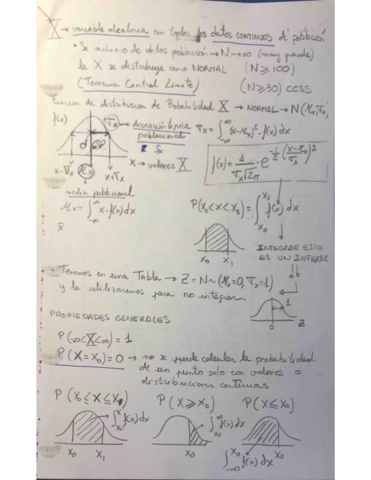 X → variable aleatoria con todos los datos continuos de población
• Si número de datos población → N → ∞ (muy grande)
la X se distribuye como NORMAL (N≥100)
(Teorema Central Límite) (N≥30) CCSS
Función de distribución de Probabilidad X → NORMAL → N(μx, σx)
f(x) σx → desviación típica poblacional σx = ∫ (x-μx)²·f(x)dx
d μx
x-σx x+σx X → valores X
f(x) = 1/σx√2π · e
media poblacional
μx = ∫ x·f(x)dx
P(x0<x<x1) = ∫ f(x)dx
x0 x1
INTEGRAR ESTO
ES UN INFIERNO
• Tenemos en una Tabla → Z = N~(μ=0, σx=1)
y la utilizaremos para no integrar.
1
0 Z
PROPIEDADES GENERALES
P(-∞<X<∞) = 1
P(X=x0)=0 → no se puede calcular la probabilidad
de un punto solo con valores o
distribuciones continuas
P(x0≤x≤x1) P(X≥x0) P(X≤x0)
∫ f(x)dx ∫ f(x)dx
x0 x1 x0 x0
∫ f(x)dx